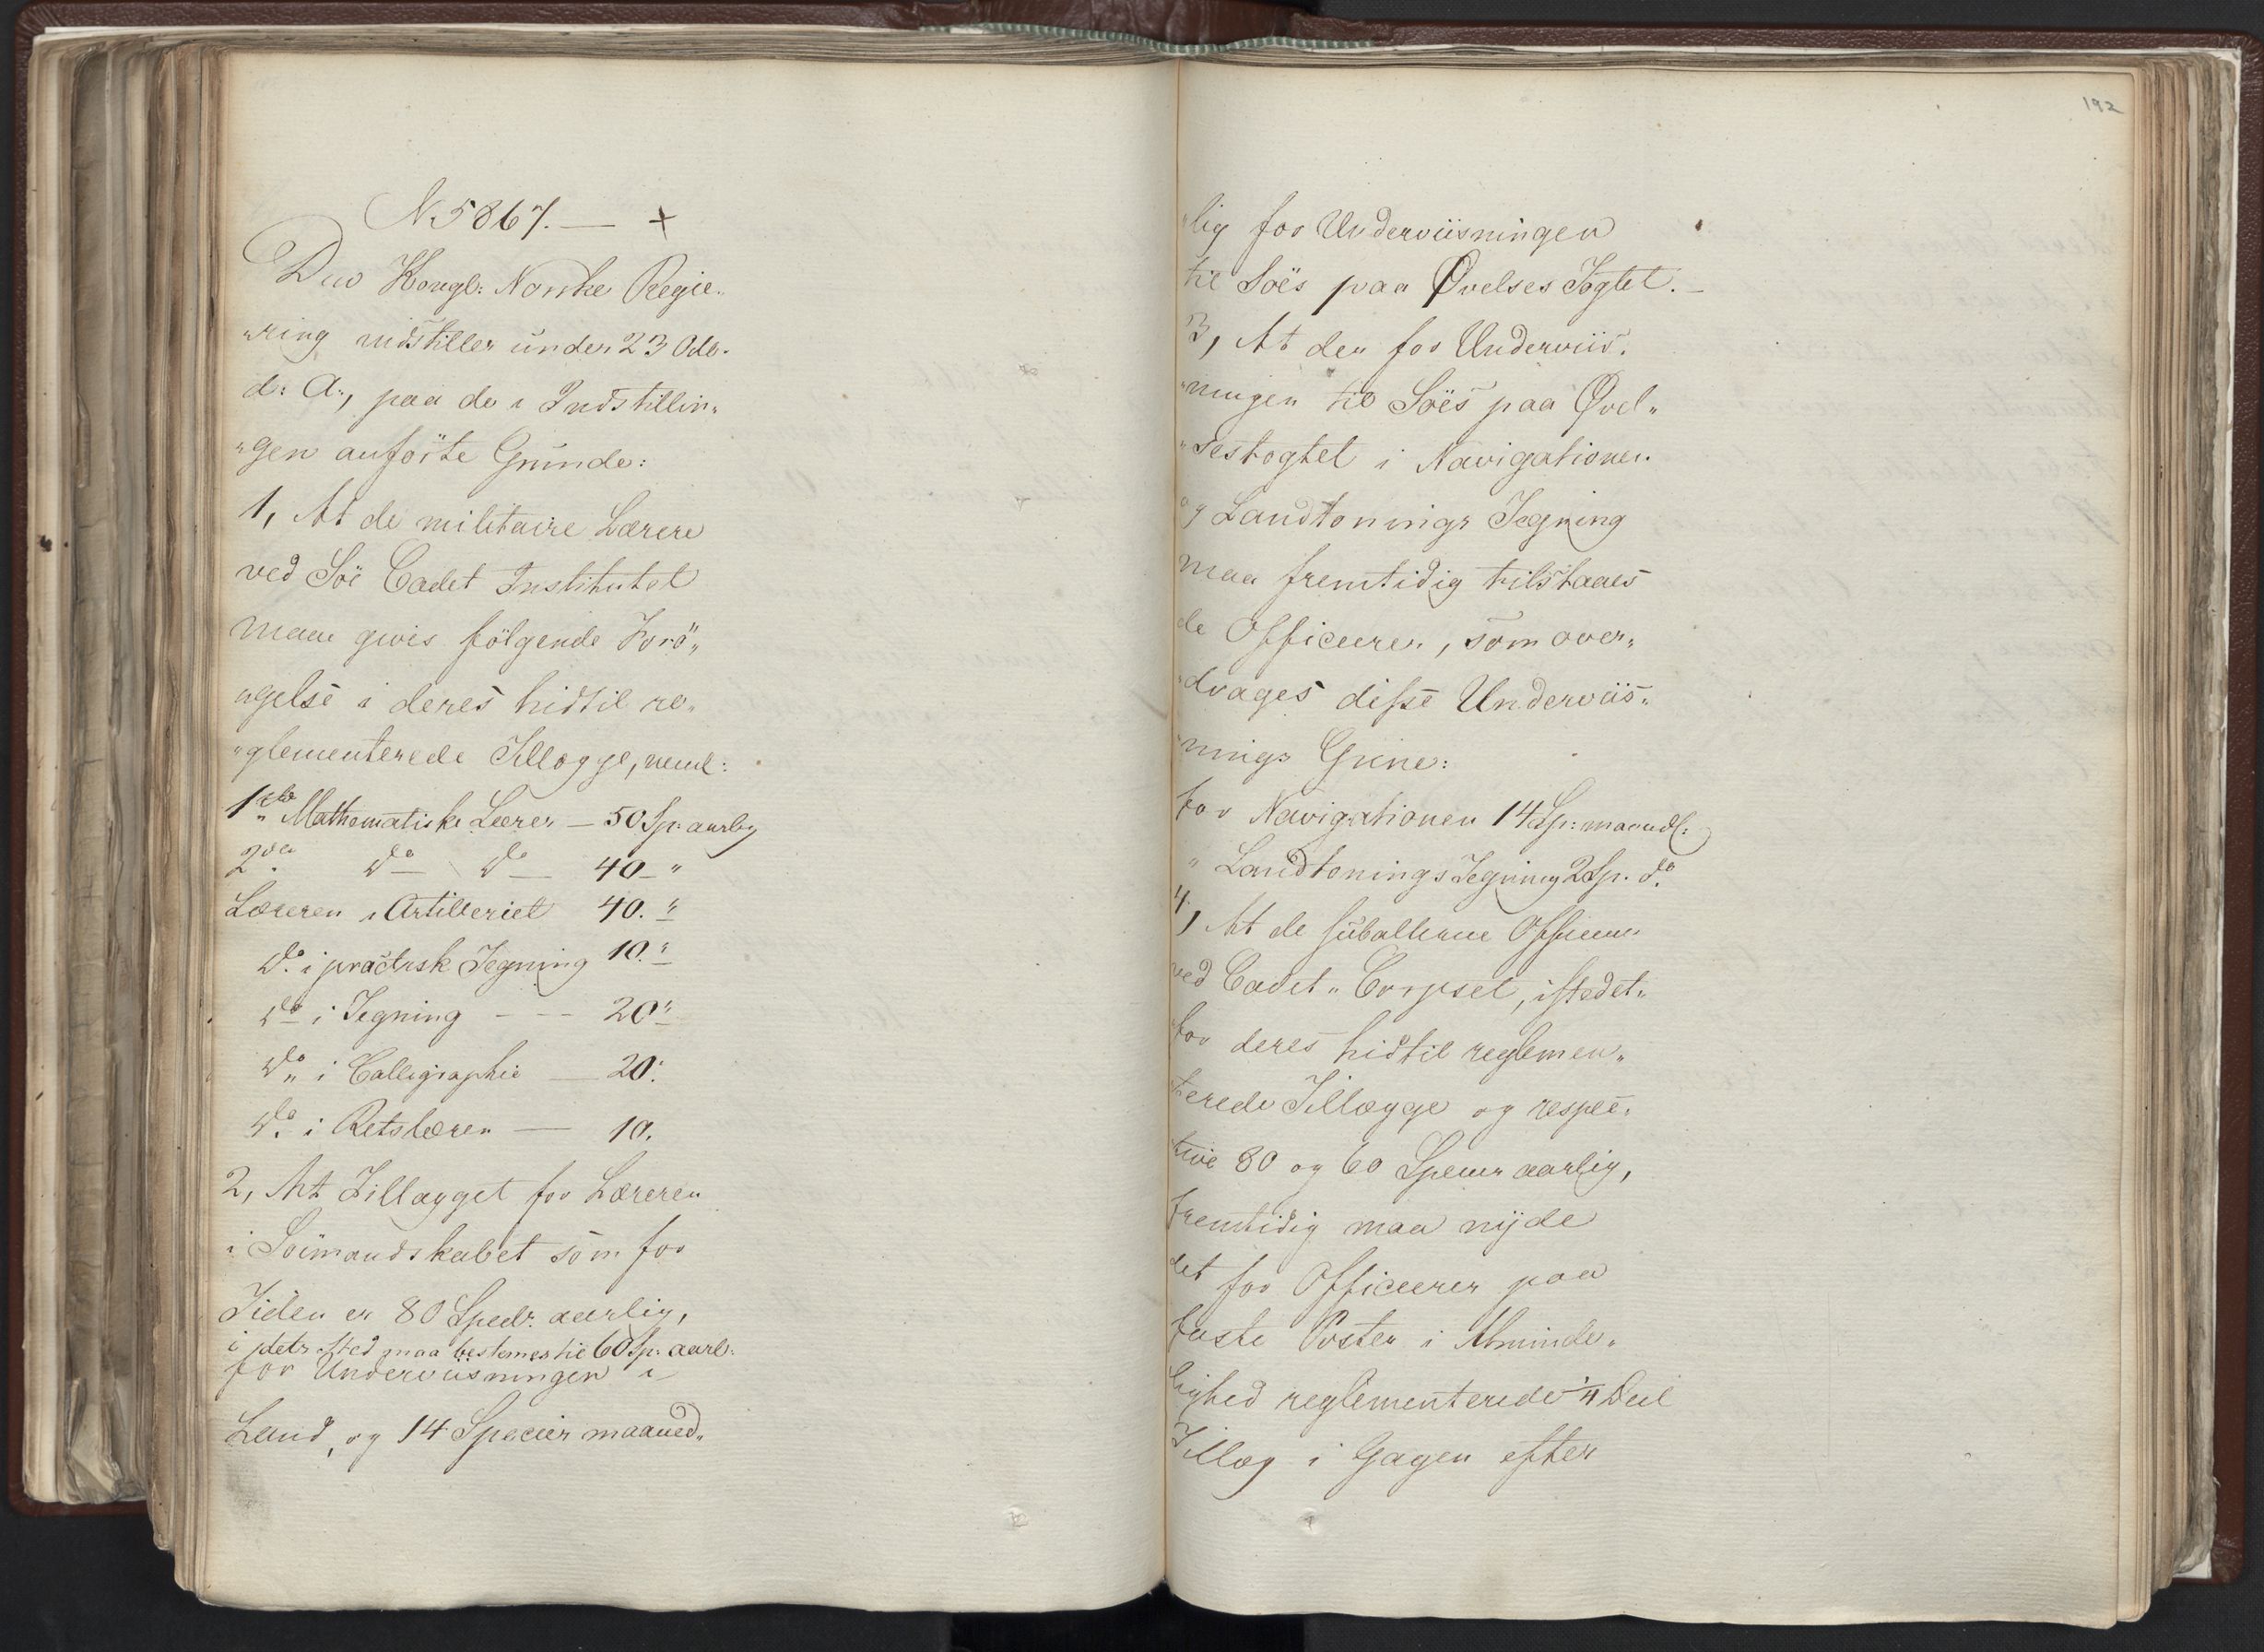 N. 5867. — +
Den Kongl: Norske Regie„
„ring indstiller under 23 Octb.
d: A:, paa de i Indstillin„
„gen anförte Grunde:
1, At de militaire Lærere
ved Söe Cadet Institutet
maae gives fölgende Forö„
„gelse i deres hidtil re„
„glementerede Tillægge, neml:
1ste Mathematiske Lærer — 50 Sp: aarlig
2den do do 40 "
Læreren i Artilleriet 40. "
do. i practisk Tegning 10. "
do i Tegning - - - 20 "
do i Calligraphie — 20.
do. i Retslæren — 10.
2, At Tillægget for Læreren
i Söemandskabet som for
Tiden er 80 Specr. aarlig,
i dets sted maa bestemes til 60 Sp: aarl:
for Underviisningen i
Land, og 14 Specier maaned„
192
„lig for Underviisningen
til Söes paa Øvelses Togtet. —
3, At der for Underviis„
„ningen til Söes paa Øvel„
„sestogtet i Navigationen
og Landtonings Tegning
maa fremtidig tilstaaes
de Officerer, som over„
„drages disse Underviis„
„nings Grene:
for Navigationen 14 Sp: maanedl:
" Landtonings Tegning 2 Sp. do.
4, At de subalterne Officerer
ved Cadet„Corpset, istedet„
for deres hidtil reglemen„
„terede Tillægge og respec„
tive 80 og 60 Specier aarlig,
fremtidig maa nyde
det for Officerer paa
faste Poster i Alminde„
lighed reglementerede 1/4 Deel
Tillæg i Gagen efter